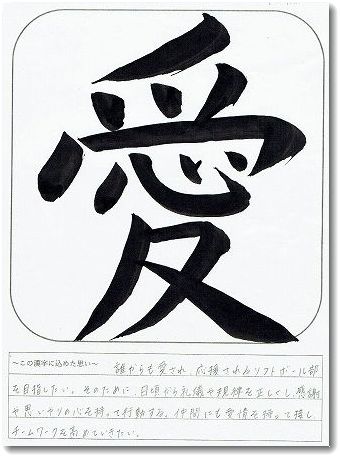 愛
～この漢字に込めた思い～
誰からも愛され、応援されるソフトボール部
を目指したい。そのために、日頃から礼儀や規律を正しくし、感謝
や思いやりの心を持って行動する。仲間にも愛情を持って接し、
チームワークを高めていきたい。